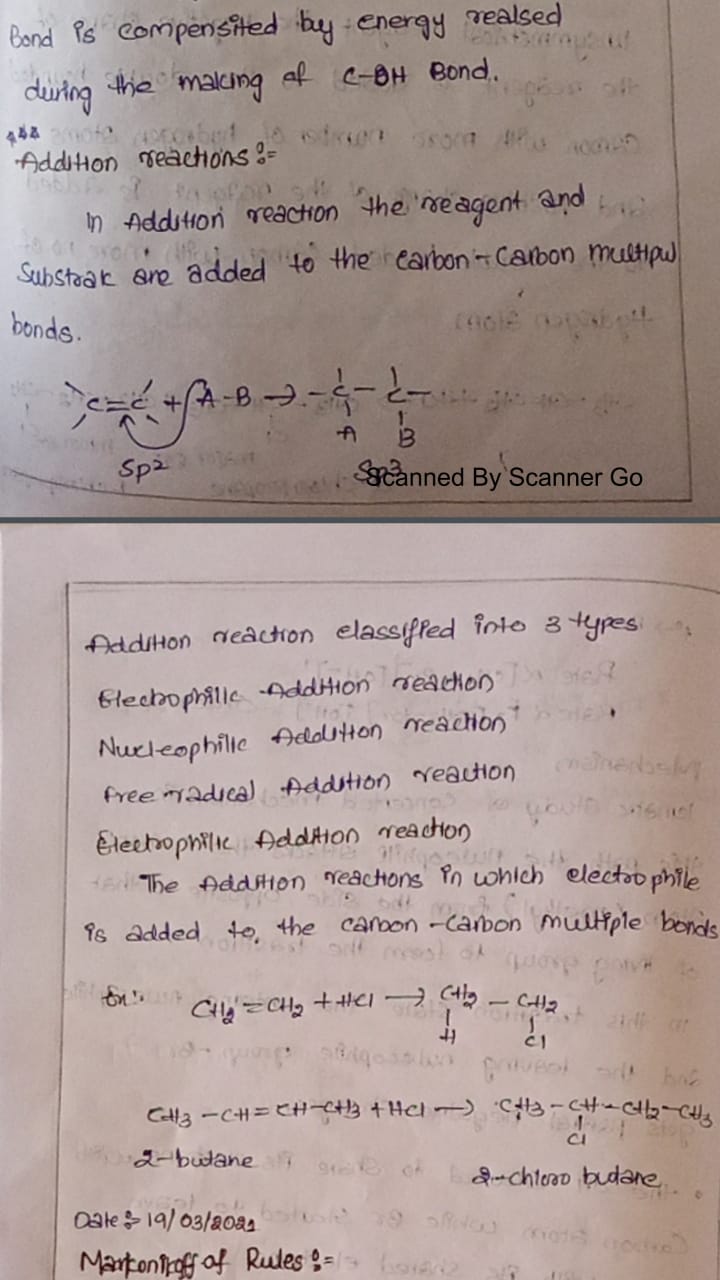 Bond is compensited by energy realsed
during the making of C-OH Bond.
Addition reactions :-
In Addition reaction the reagent and
Substrak are added to the carbon-carbon multipul
bonds.
C=C + A-B → -C-C-
A B
Sp2 Sp3
Scanned By Scanner Go
Addition reaction classified into 3 types
Electrophilic Addition reaction
Nucleophilic Addition reaction
free radical Addition reaction
Electrophilic Addition reaction
The Addition reactions in which electrophile
is added to, the carbon-carbon multiple bonds
Ex:-
CH2=CH2 + HCl → CH2 - CH2
H Cl
CH3-CH=CH-CH3 + HCl → CH3-CH-CH2-CH3
Cl
2-butane 2-chloro butane
Date :- 19/03/2021
Markoniroff of Rules :-